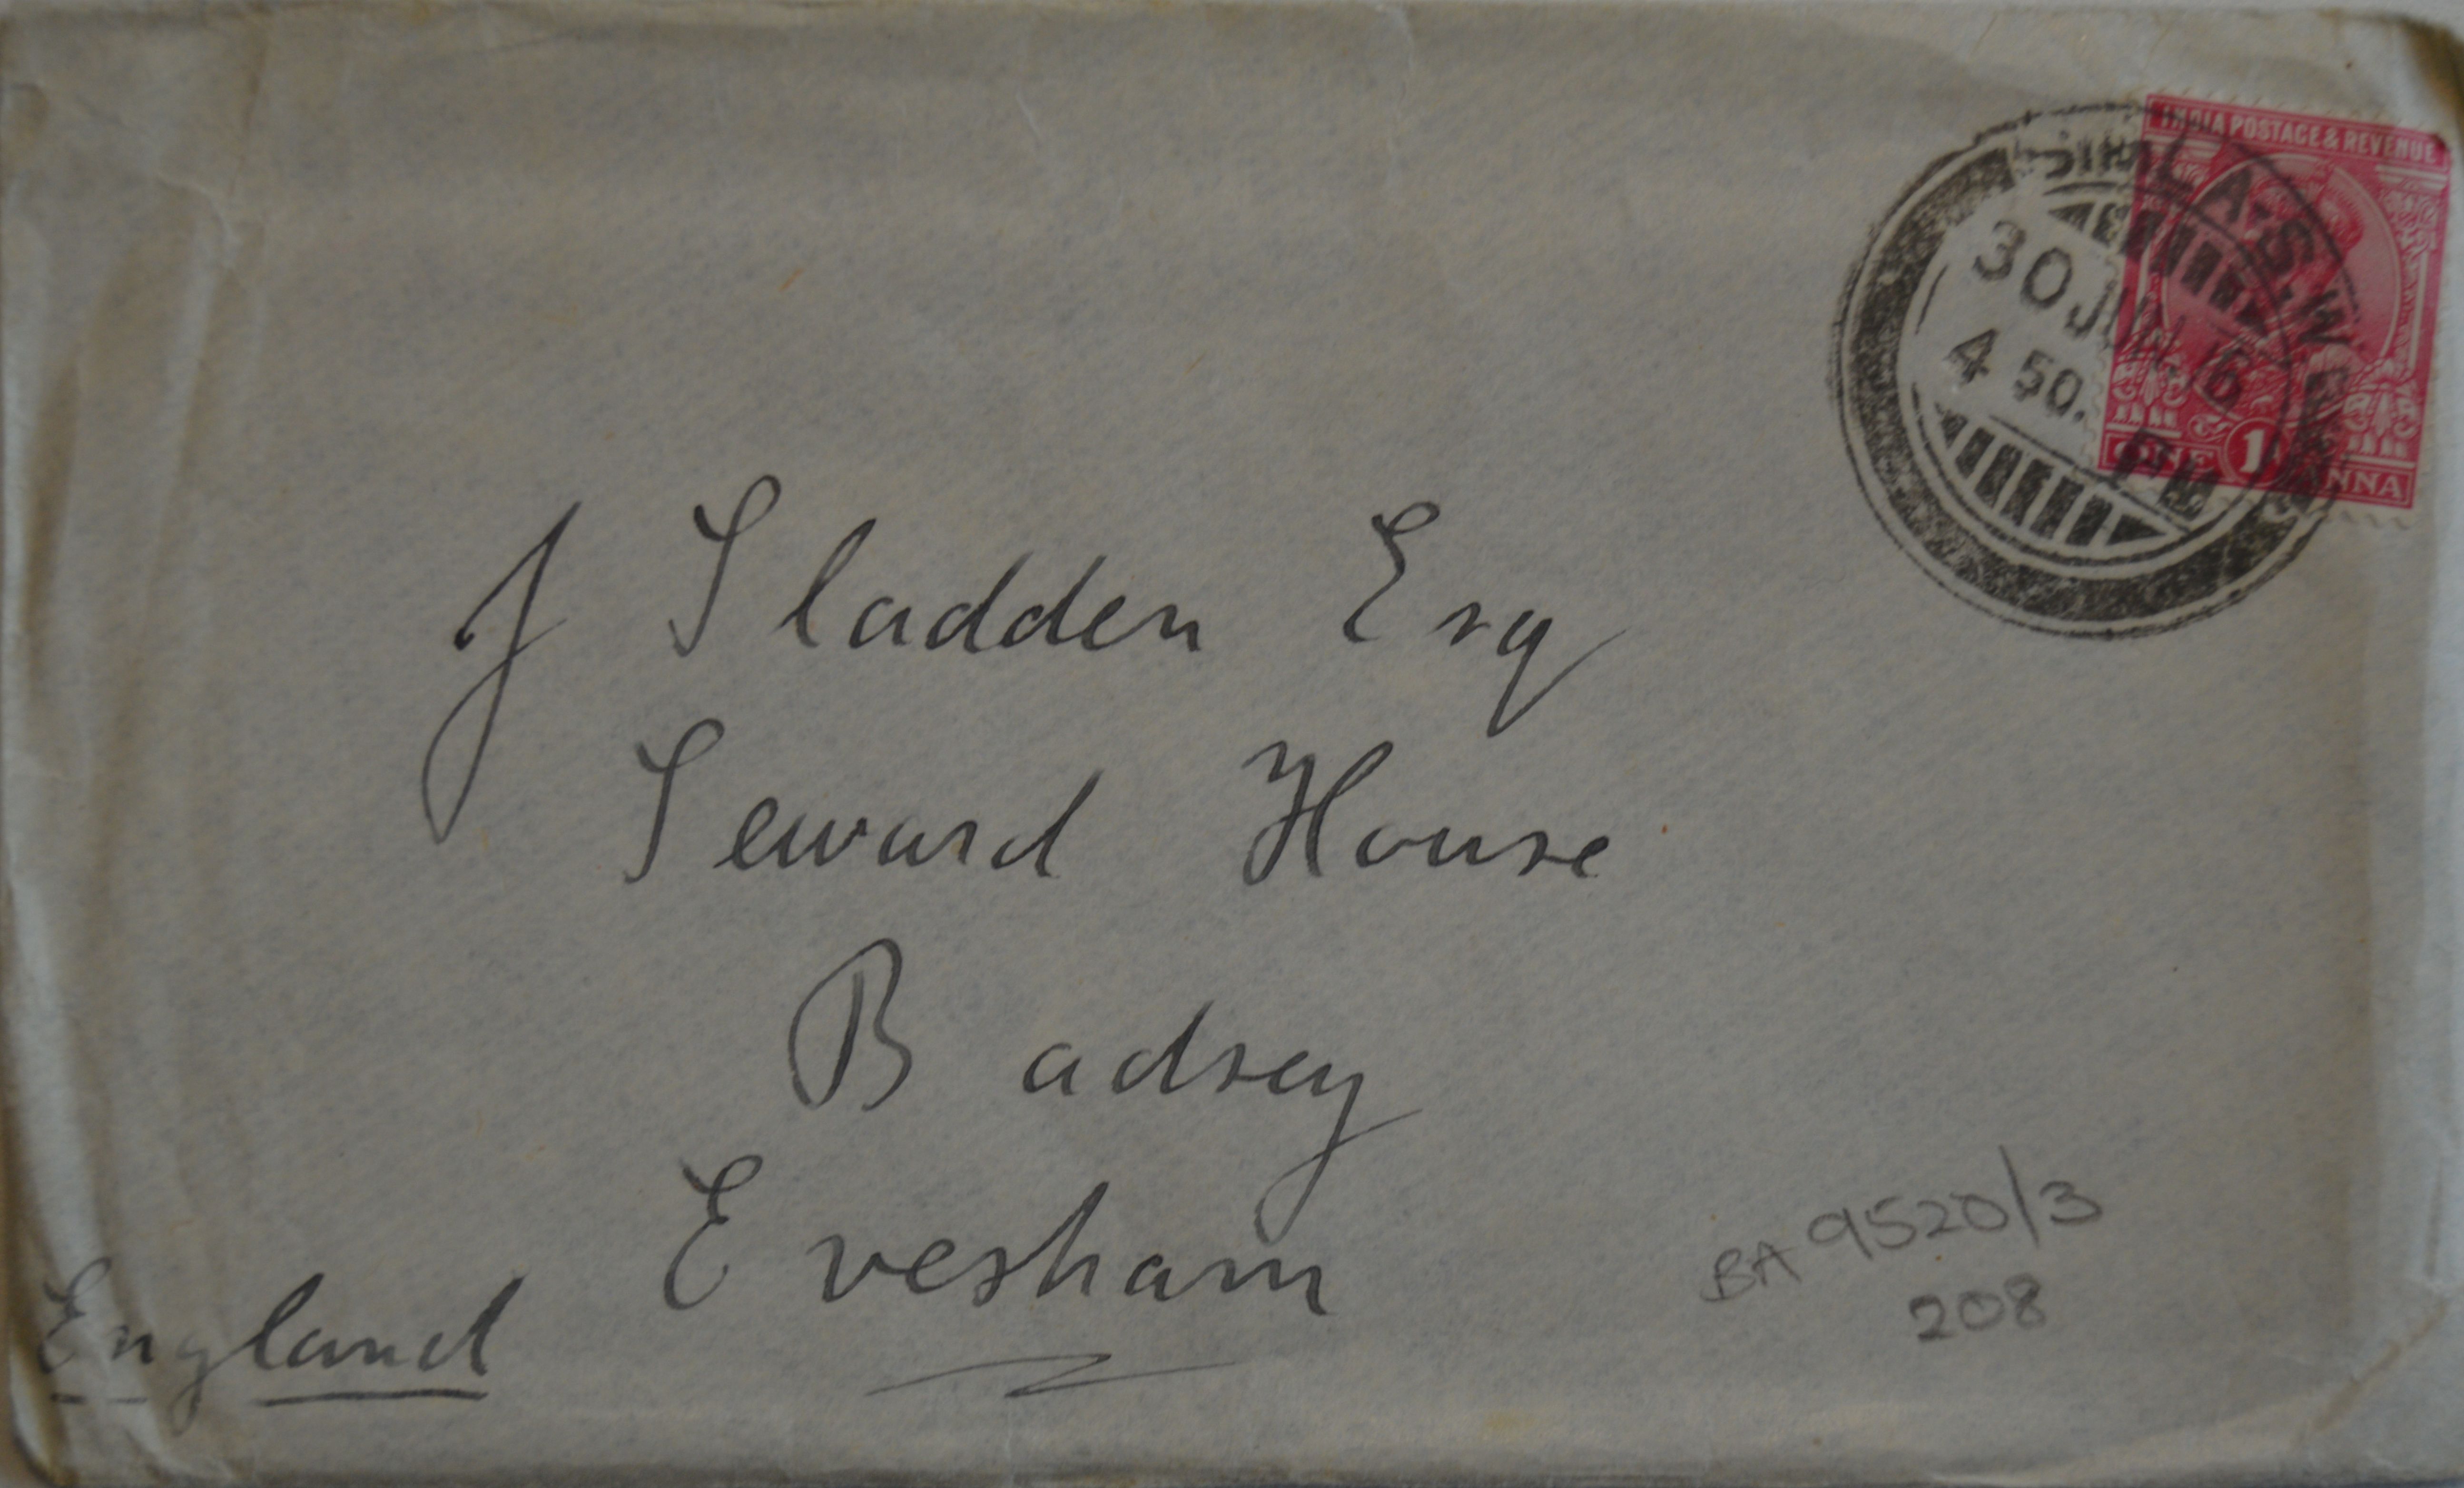 INDIA POSTAGE & REVENUE
SIMLA-S.W.
30 JUN. 16
4 50. PM
ONE 1 ANNA
J Sladden Esq
Seward House
Badsey
Evesham
England
BA 9520/3
208